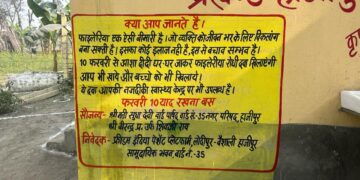 क्या आप जानते है।
फाइलेरिया एक ऐसी बीमारी है। जो व्यक्ति को जीवन भर के लिए विकलांग
बना सकती है। इसका कोई इलाज नहीं है, इस से बचाव सम्भव है।
10 फरवरी से आशा दीदी घर घर जाकर फाइलेरिया रोधी दवा खिलाएंगी
आप भी खाये और बच्चो को भी खिलाये।
ये दवा आपकी नजदीकी स्वास्थ्य केन्द्र पर भी उपलब्ध है।
फरवरी 10 याद रखना बस
सौजन्य:- श्री मती सुधा देवी वार्ड पार्षद वार्ड सं-35 नगर परिषद, हाजीपुर
श्री वीरेन्द्र प्र. उर्फ शिवजी राय
निवेदक:- फ्रीडम इंडिया पेशेंट प्लेटफार्म, लोदीपुर- वैशाली हाजीपुर
सामुदायिक भवन वार्ड नं.-35